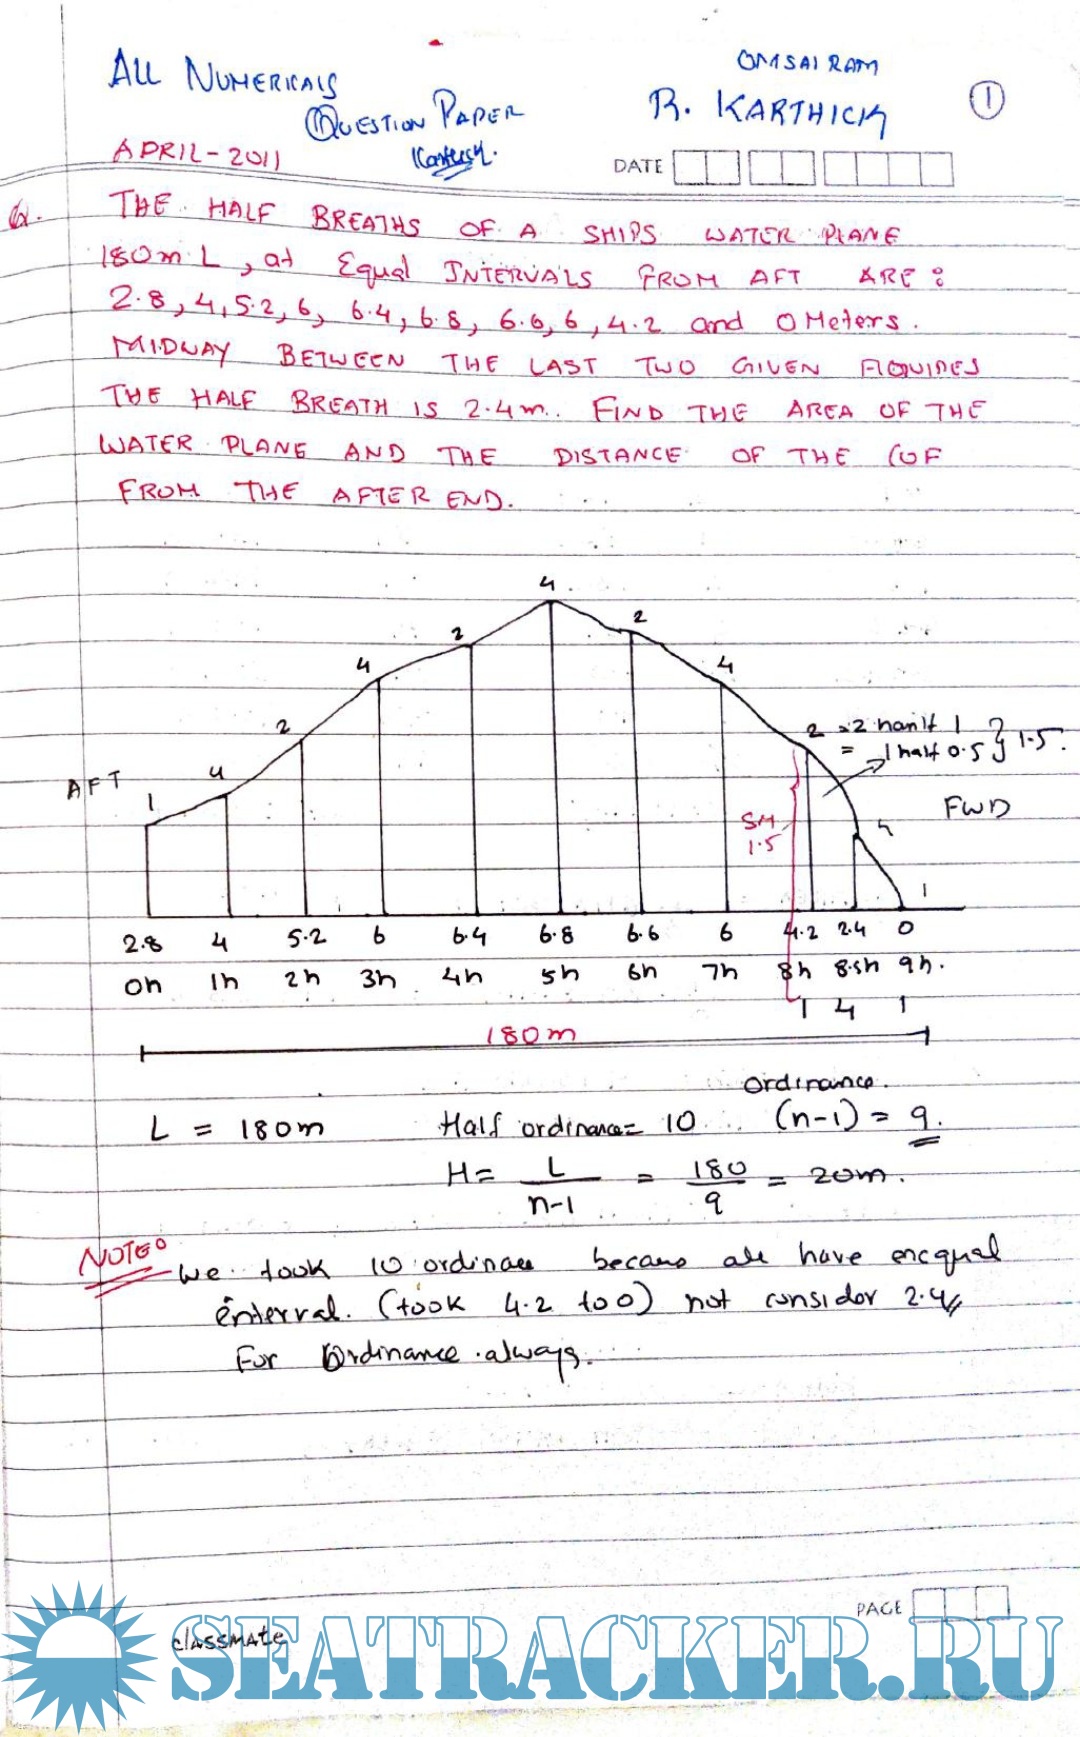 ALL NUMERICALS
OMSAIRAM
QUESTION PAPER
R. KARTHICK
1
APRIL-2011
DATE
Q.
THE HALF BREATHS OF A SHIPS WATER PLANE
180m L, at Equal INTERVALS FROM AFT ARE:
2.8, 4, 5.2, 6, 6.4, 6.8, 6.6, 6, 4.2 and 0 Meters.
MIDWAY BETWEEN THE LAST TWO GIVEN
THE HALF BREATH IS 2.4m. FIND THE AREA OF THE
WATER PLANE AND THE DISTANCE OF THE COF
FROM THE AFTER END.
4
2 2
4 4
2 2 = 2 1 } 1.5.
= 1 half 0.5
AFT 1 4
FWD
SM
1.5
4
1
2.8 4 5.2 6 6.4 6.8 6.6 6 4.2 2.4 0
0h 1h 2h 3h 4h 5h 6h 7h 8h 8.5h 9h.
1 4 1
180m
ordinance.
L = 180m Half ordinance = 10 (n-1) = 9.
H = L/n-1 = 180/9 = 20m.
NOTE:
We took 10 have
interval. (took 4.2 to 0) not consider 2.4
For Ordinance always.
PAGE
classmate
SEATRACKER.RU